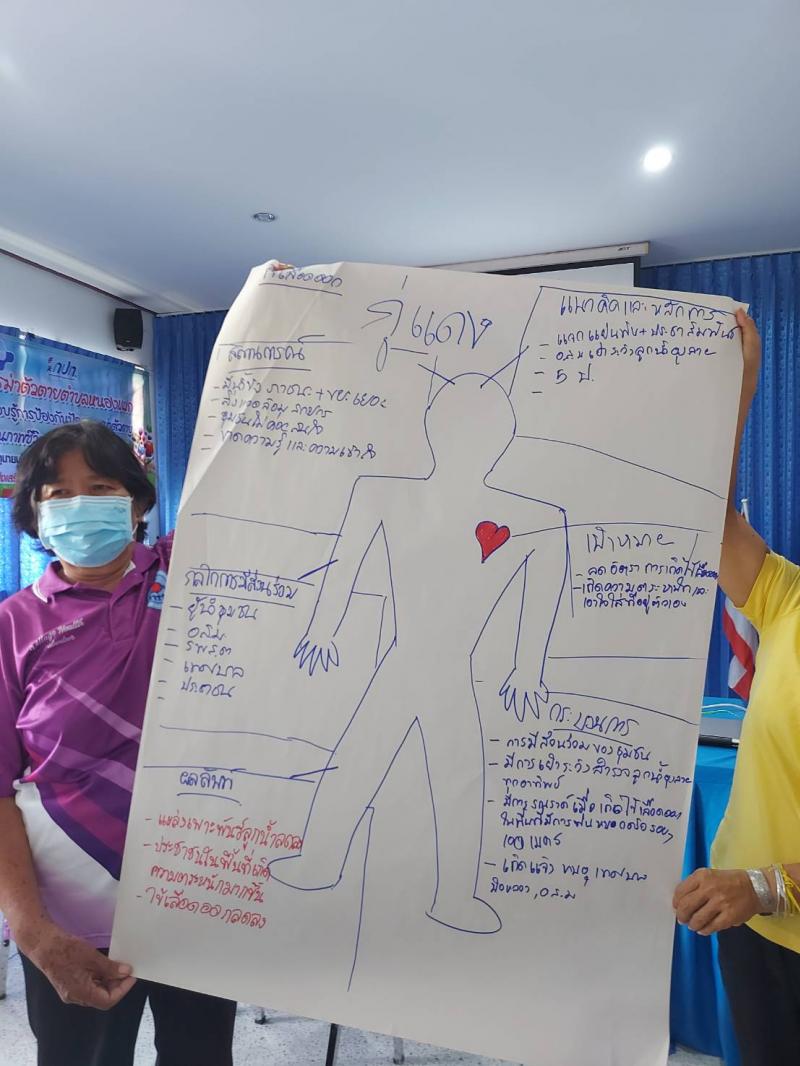 ไข้เลือดออก
ภู่แดง
สถานการณ์
- มีน้ำขัง ภาชนะ + ขยะเยอะ
- สิ่งแวดล้อม
- ชุมชนไม่ค่อยสนใจ
- ขาดความรู้ และความเข้าใจ
แนวคิดและหลักการ
- แจกแผ่นพับ + ประชาสัมพันธ์
- อสม เฝ้าระวังลูกน้ำยุงลาย
- 5 ป.
-
กลไกการมีส่วนร่วม
- ผู้นำชุมชน
- อสม.
- รพ.สต
- เทศบาล
- ประชาชน
-
เป้าหมาย
- ลดอัตราการเกิดไข้เลือดออก
- เกิดความตระหนักและ
เอาใจใส่ที่อยู่ตัวเอง
กระบวนการ
- การมีส่วนร่วมของชุมชน
- มีการเฝ้าระวังสำรวจลูกน้ำยุงลาย
ทุกอาทิตย์
- มีการรณรงค์เมื่อเกิดไข้เลือดออก
ในพื้นที่มีการพ่นหมอกควันรอบๆ
100 เมตร
- เกิดแล้ว เทศบาล
อ.ส.ม
ผลลัพท์
- แหล่งเพาะพันธุ์ลูกน้ำลดลง
- ประชาชนในพื้นที่เกิด
ความตระหนักมากขึ้น
- ไข้เลือดออกลดลง
กปท.
ฆ่าตัวตายตำบลหนอง
Village Health
Volunteer
acer